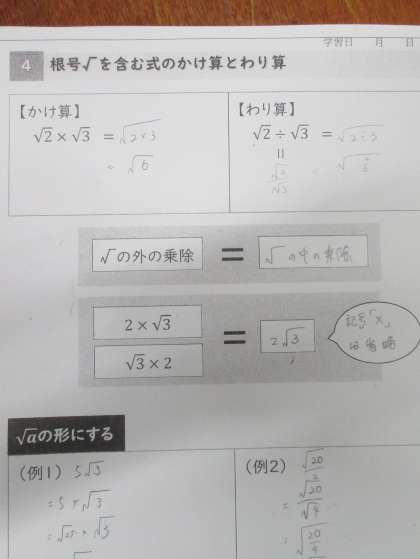 学習日 月 日
4 根号√を含む式のかけ算とわり算
【かけ算】
√2 × √3 = √2×3
= √6
【わり算】
√2 ÷ √3 = √2÷3
=
√2/√3 = √2/3
√の外の乗除 = √の中の乗除
2 × √3
√3 × 2
= 2√3
記号「×」
は省略
√aの形にする
(例1) 5√3
=5×√3
=√25×√3
(例2) √20/2
= √20/√4
= √20/4